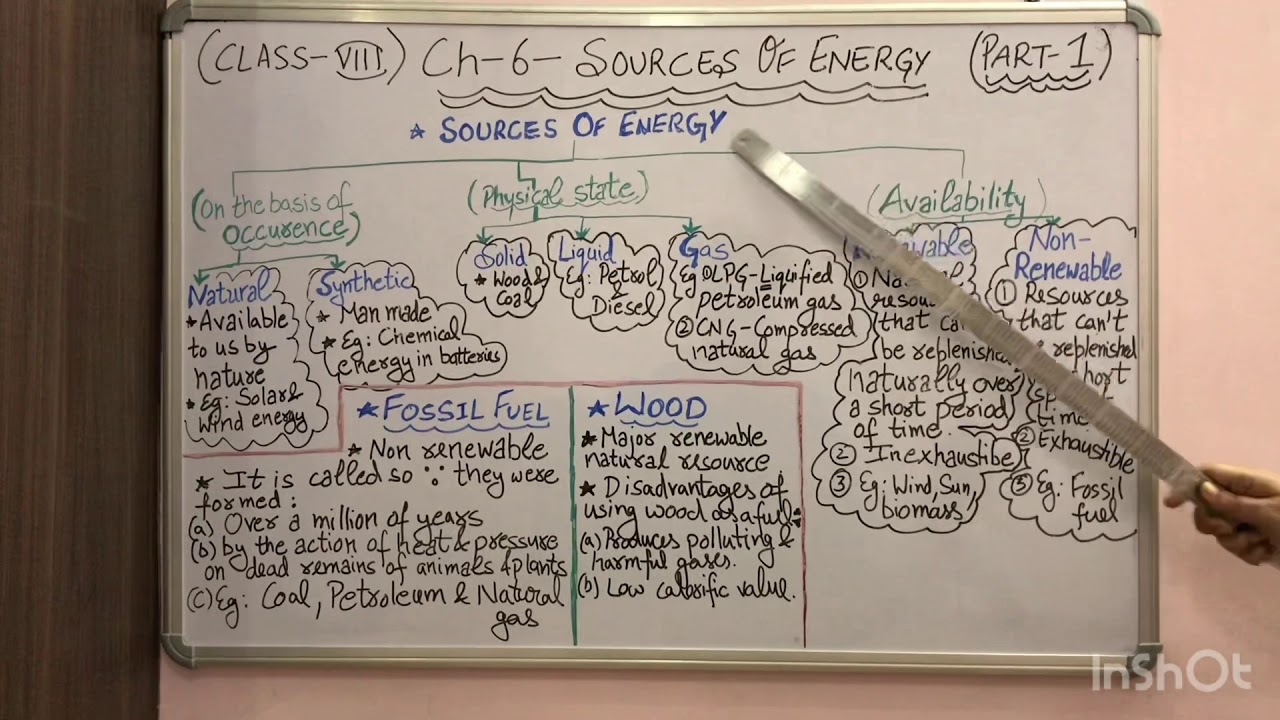 (CLASS-VIII) Ch-6- SOURCES OF ENERGY (PART-1)
* SOURCES OF ENERGY
(On the basis of
OCCURENCE)
Natural
* Available
to us by
nature
* Eg: Solar &
wind energy
Synthetic
* Man made
* Eg: Chemical
energy in batteries
(Physical state)
Solid
* Wood &
Coal
Liquid
Eg: Petrol
&
Diesel
Gas
Eg ① LPG-Liquified
petroleum gas
② CNG-Compressed
natural gas
(Availability)
① 
that
be replenish
naturally over
a short period
of time.
② Inexhaustibe
③ Eg: Wind, Sun,
biomass
Non-
Renewable
① Resources
that can't
replenished
time
② Exhaustible
③ Eg: Fossil
fuel
* FOSSIL FUEL
* Non renewable
* It is called so ∵ they were
formed:
(a) Over a million of years
(b) by the action of heat & pressure
on dead remains of animals & plants
(c) Eg: Coal, Petroleum & Natural
gas
* WOOD
* Major renewable
natural resource
* Disadvantages of
using wood as a fuel:-
(a) Produces polluting &
harmful gases.
(b) Low calorific value.
InShOt